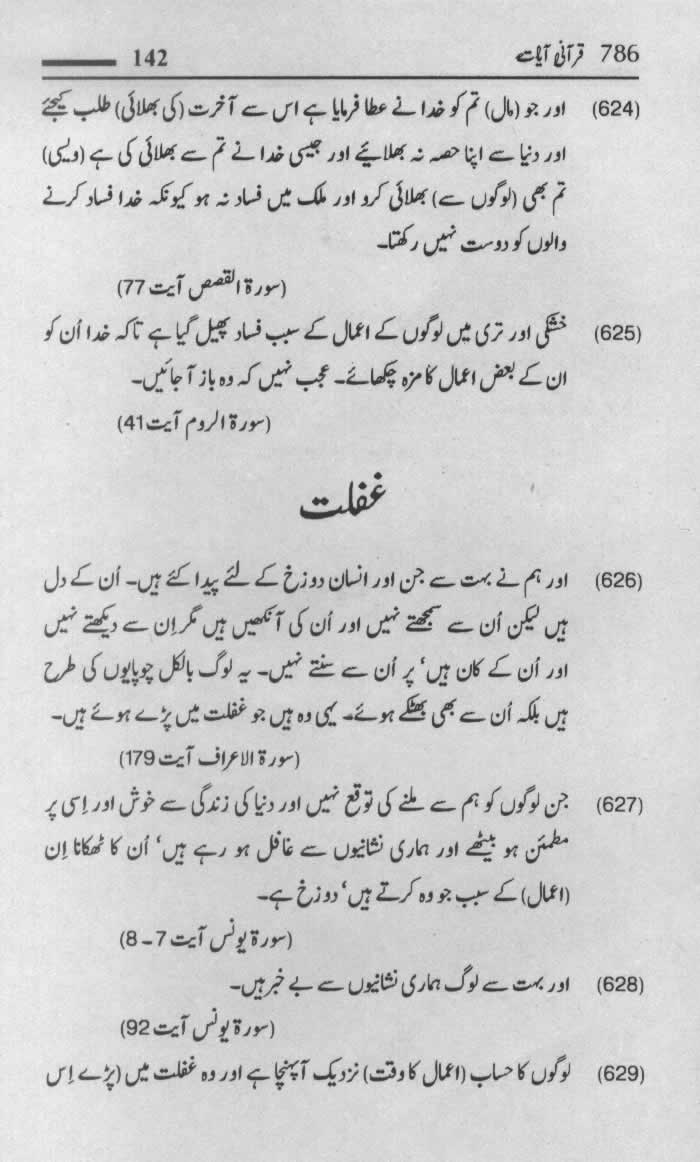 786 قرآنی آیات 142
(624) اور جو (مال) تم کو خدا نے عطا فرمایا ہے اس سے آخرت (کی بھلائی) طلب کیجئے
اور دنیا سے اپنا حصہ نہ بھلائیے اور جیسی خدا نے تم سے بھلائی کی ہے (ویسی)
تم بھی (لوگوں سے) بھلائی کرو اور ملک میں فساد نہ ہو کیونکہ خدا فساد کرنے
والوں کو دوست نہیں رکھتا۔
(سورۃ القصص آیت 77)
(625) خشکی اور تری میں لوگوں کے اعمال کے سبب فساد پھیل گیا ہے تاکہ خدا اُن کو
ان کے بعض اعمال کا مزہ چکھائے۔ عجب نہیں کہ وہ باز آ جائیں۔
(سورۃ الروم آیت 41)
غفلت
(626) اور ہم نے بہت سے جن اور انسان دوزخ کے لئے پیدا کئے ہیں۔ اُن کے دل
ہیں لیکن اُن سے سمجھتے نہیں اور اُن کی آنکھیں ہیں مگر اِن سے دیکھتے نہیں
اور اُن کے کان ہیں‘ پر اُن سے سنتے نہیں۔ یہ لوگ بالکل چوپایوں کی طرح
ہیں بلکہ اُن سے بھی بھٹکے ہوئے۔ یہی وہ ہیں جو غفلت میں پڑے ہوئے ہیں۔
(سورۃ الاعراف آیت 179)
(627) جن لوگوں کو ہم سے ملنے کی توقع نہیں اور دنیا کی زندگی سے خوش اور اِسی پر
مطمئن ہو بیٹھے اور ہماری نشانیوں سے غافل ہو رہے ہیں‘ اُن کا ٹھکانا اِن
(اعمال) کے سبب جو وہ کرتے ہیں‘ دوزخ ہے۔
(سورۃ یونس آیت 7 - 8)
(628) اور بہت سے لوگ ہماری نشانیوں سے بے خبر ہیں۔
(سورۃ یونس آیت 92)
(629) لوگوں کا حساب (اعمال کا وقت) نزدیک آ پہنچا ہے اور وہ غفلت میں (پڑے اِس